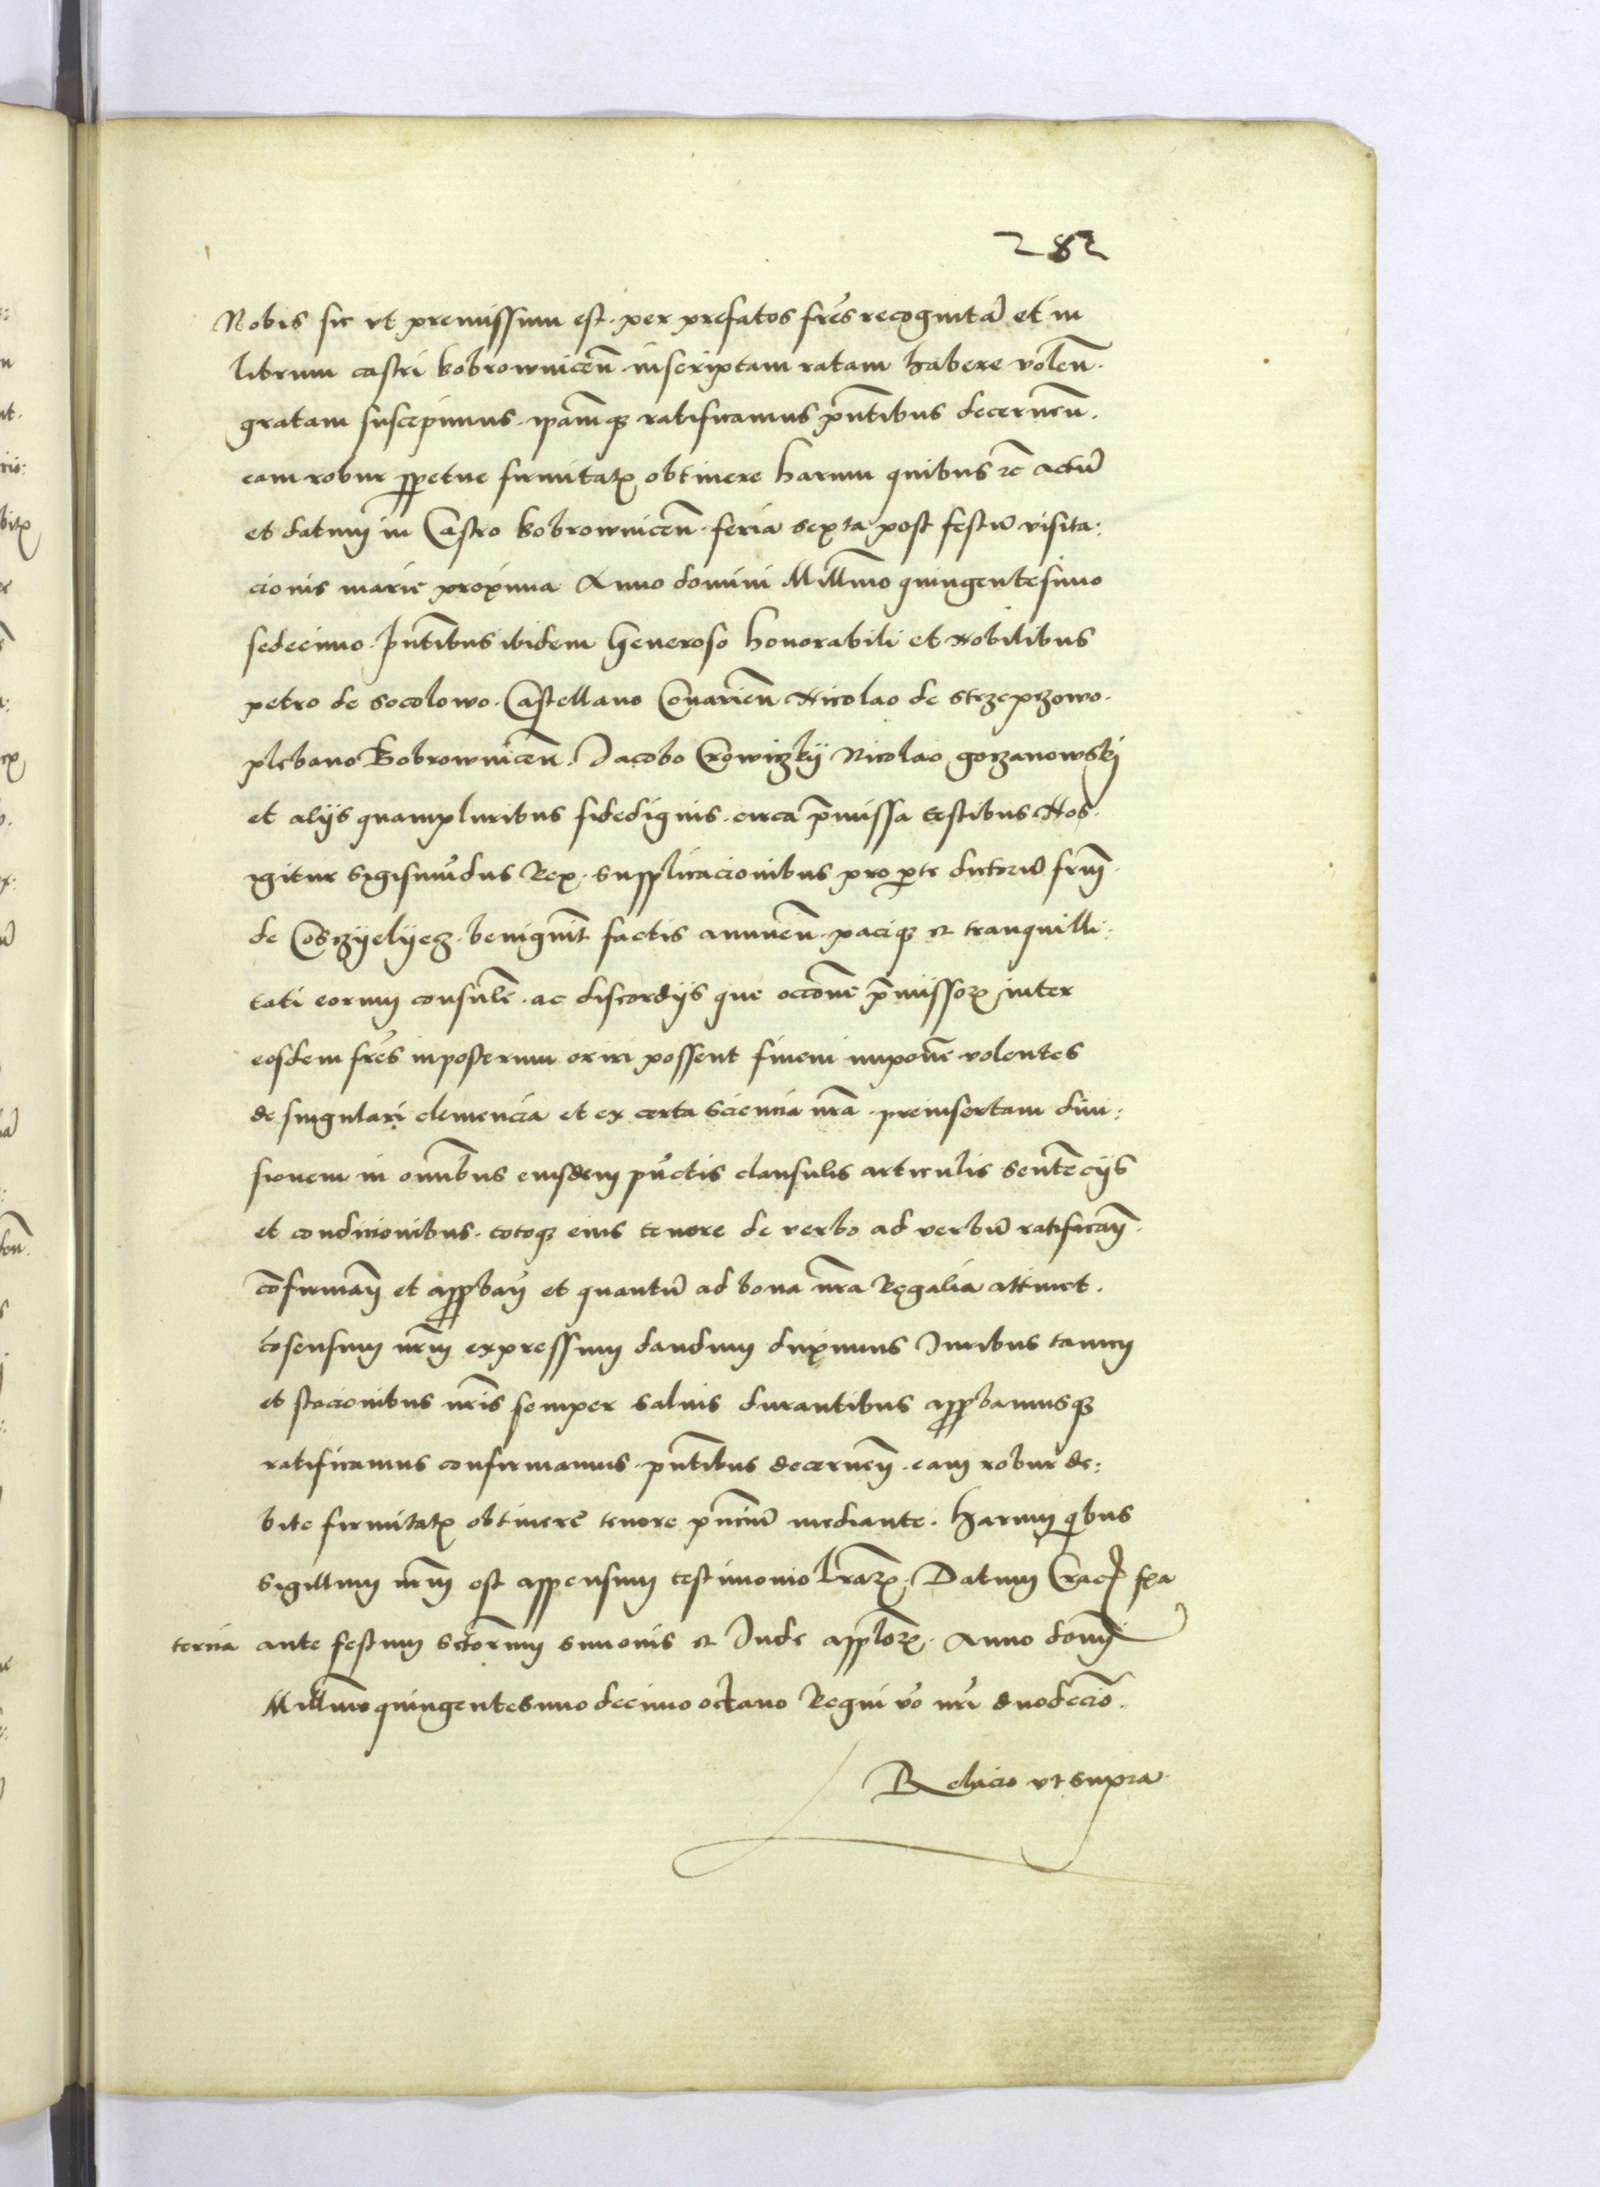 282
Nobis sic vt premissum est. per prefatos frēs recognitā et in
librum castri bobrownicen̄. inscriptam ratam habere volen̄.
gratam suscepimus. ipāmqꝫ ratificamus pn̄tibus decernen̄.
eam robur ꝑpetue firmitatꝭ obtinere harum quibus ꝛc̄ actū
et datum in Castro bobrownicen̄. feria sexta post festū visita:
cionis marie proxima Anno domini Millm̄o quingentesimo
sedecimo. pn̄tibus ibidem Generoso honorabili et Nobilibus
petro de socolowo. Castellano Conarien̄ Nicolao de strzepczowo.
plebano Bobrownicen̄. Jacobo Crowiczkij Nicolao gorzanowskj
et alijs quampluribus fidedignis. circa p̄missa testibus Nos.
igitur sigismūdus Rex. supplicacionibus pro ꝑte dictorū frm̄.
de Cosczyelyecz. benignit̄ factis annuen̄. paciqꝫ et tranquilli:
tati eorum consulē. ac discordijs que occōne p̄missorꝝ inter
eosdem frēs inposterum oriri possent finem inponē volentes
de singulari clemencia et ex certa sciencia nr̄a. preinsertam diui:
sionem in omībus eiusdem pūctis clausulis articulis sentēcijs
et condicionibus. totoqꝫ eius tenore de verbo ad verbū ratifican̄.
cōfirman̄ et app̄roban̄ et quantū ad bona nr̄a Regalia attinet.
cōsensum nrm̄ expressum dandum duximus Juribus tamen
et stacionibus nr̄is semper saluis durantibus approbamusqꝫ
ratificamus confirmamus. pn̄tibus decernen̄. eam robur de:
bite firmitatꝭ obtinere tenore pn̄ciū mediante. Harum qibus
sigillum nrm̄ est appensum testimonio lr̄arꝝ. Datum Crac̄ f̄ia
tercia ante festum sctōrum simonis et Jude ap̄plorꝝ. Anno domī
Millm̄o quingentesimo decimo octauo Regni v̄o nrī duodecīo.
Relacio vt supra